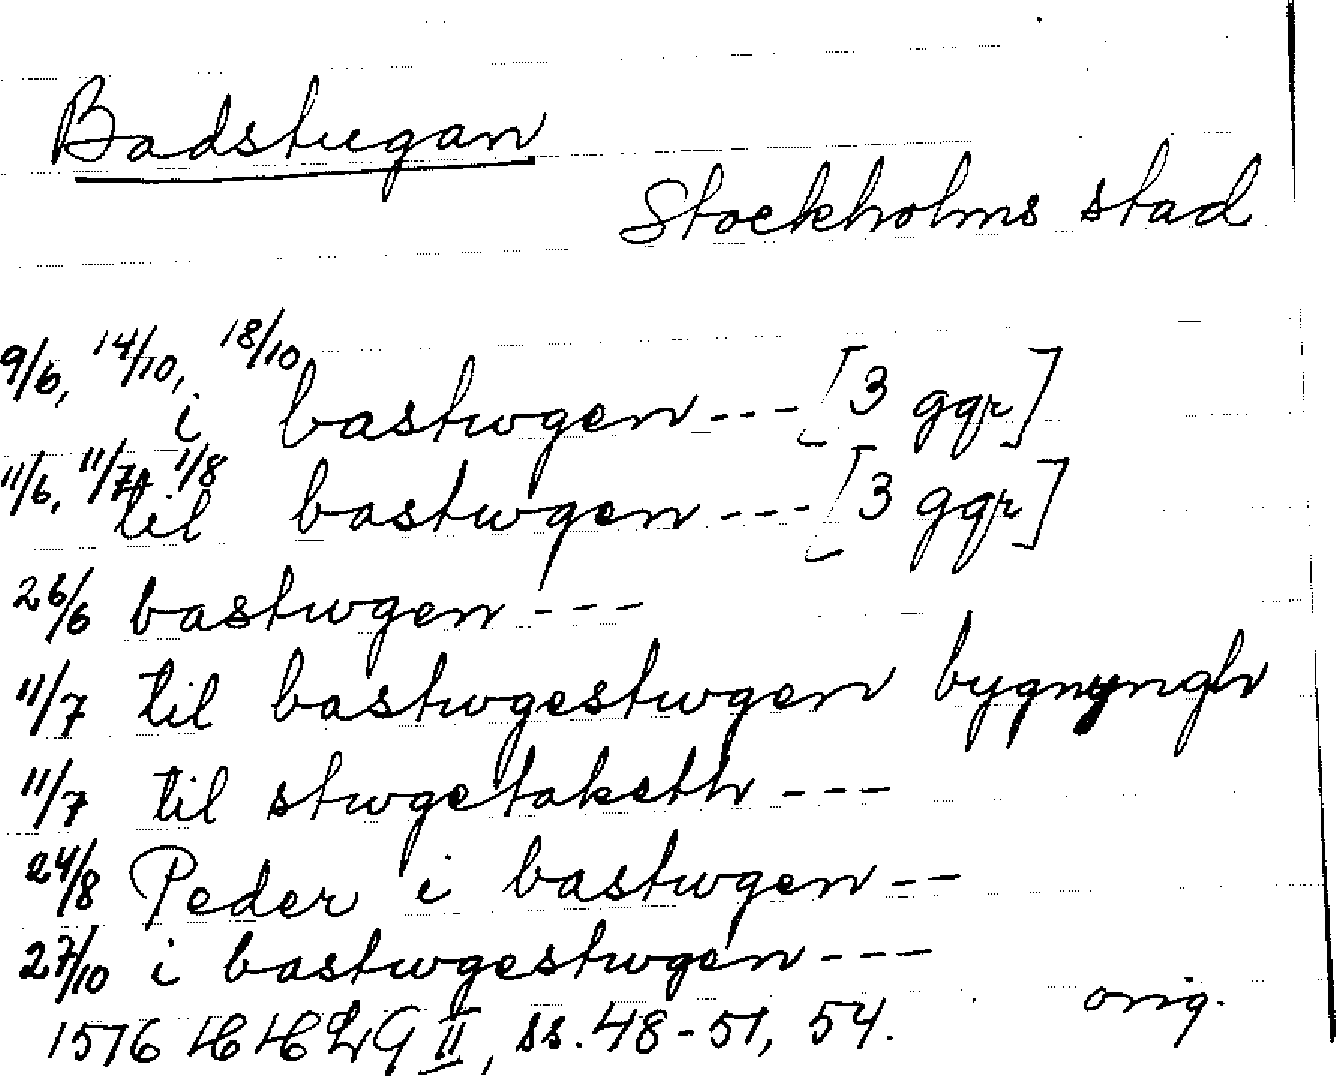 Badstugan
Stockholms stad
9/6, 14/10, 18/10
i bastwgen --- [3 ggr]
11/6, 11/7, 1/8
til bastwgen --- [3 ggr]
26/6 bastwgen ---
11/7 til bastwgestwgen bygnyngh
11/7 til stwgetaketh ---
24/8 Peder i bastwgen --
27/10 i bastwgestwgen ---
1576 HHLG II, ss. 48-51, 54. orig.